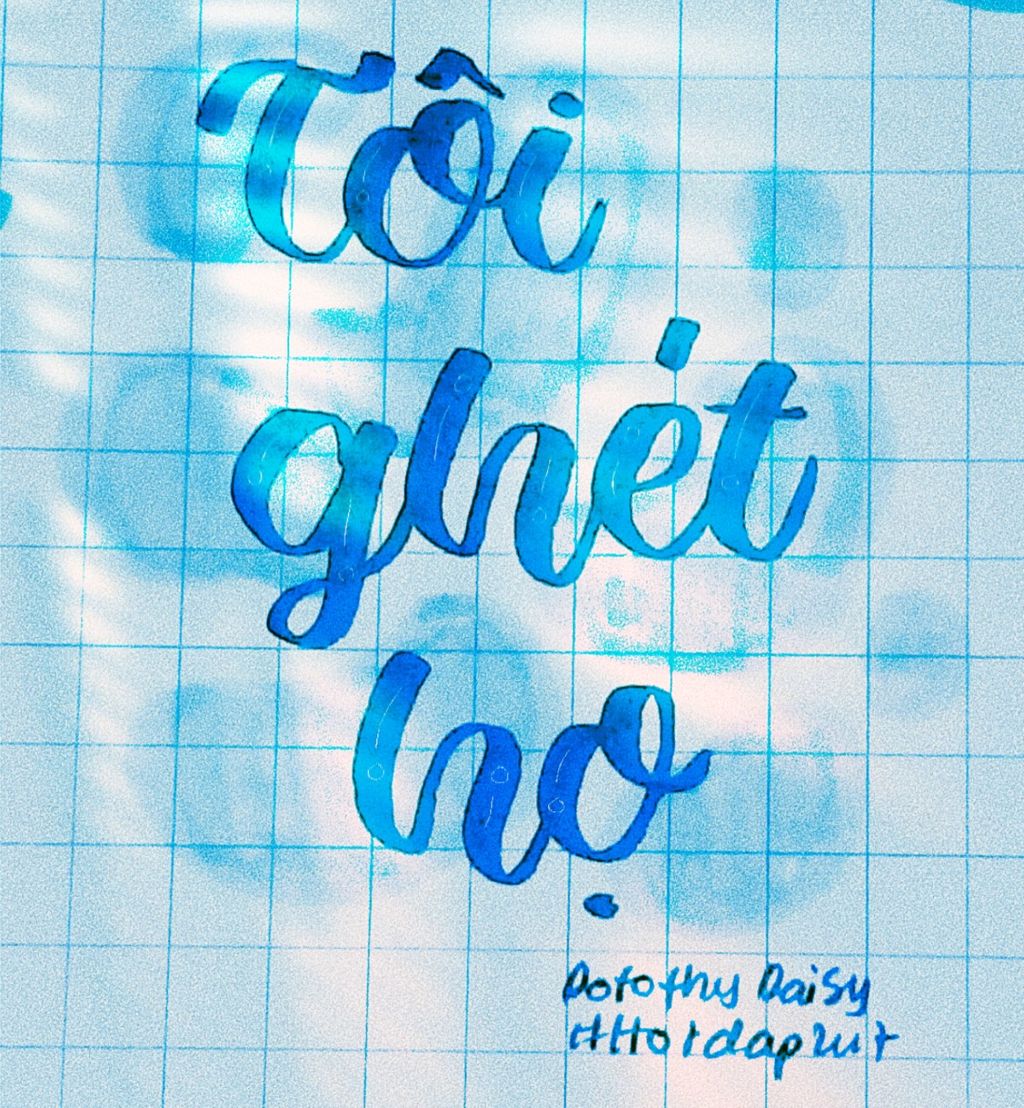 Tôi
ghét
họ
Dorothy Daisy
#Hoidap247